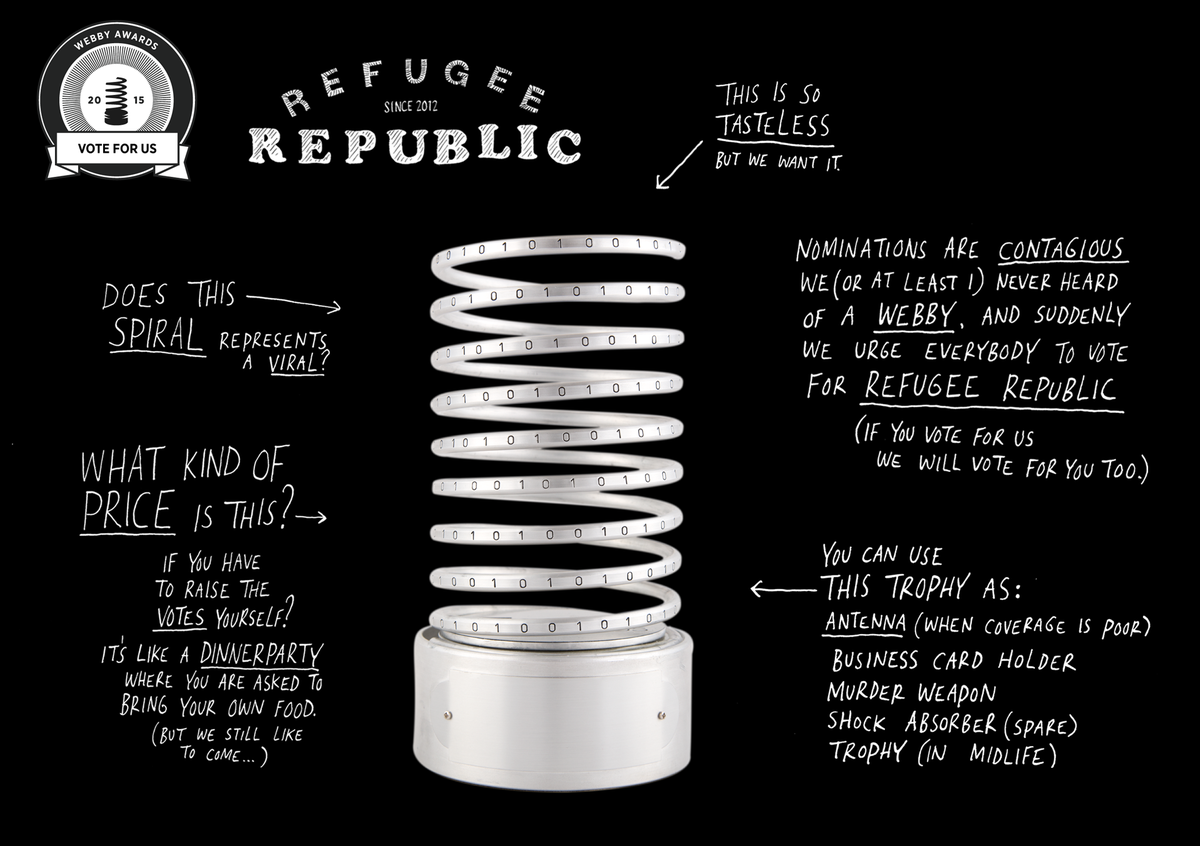 WEBBY AWARDS
20 15
VOTE FOR US
REFUGEE
SINCE 2012
REPUBLIC
THIS IS SO
TASTELESS
BUT WE WANT IT.
DOES THIS
SPIRAL REPRESENTS
A VIRAL?
NOMINATIONS ARE CONTAGIOUS
WE (OR AT LEAST I) NEVER HEARD
OF A WEBBY, AND SUDDENLY
WE URGE EVERYBODY TO VOTE
FOR REFUGEE REPUBLIC
(IF YOU VOTE FOR US
WE WILL VOTE FOR YOU TOO.)
WHAT KIND OF
PRICE IS THIS?
IF YOU HAVE
TO RAISE THE
VOTES YOURSELF?
IT'S LIKE A DINNERPARTY
WHERE YOU ARE ASKED TO
BRING YOUR OWN FOOD.
(BUT WE STILL LIKE
TO COME...)
YOU CAN USE
THIS TROPHY AS:
ANTENNA (WHEN COVERAGE IS POOR)
BUSINESS CARD HOLDER
MURDER WEAPON
SHOCK ABSORBER (SPARE)
TROPHY (IN MIDLIFE)